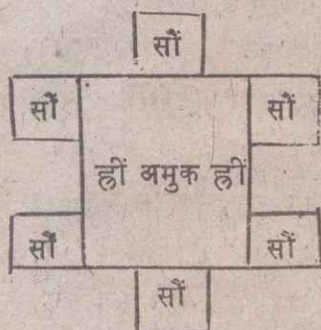 सौं
सौं सौं
ह्रीं अमुक ह्रीं
सौं सौं
सौं